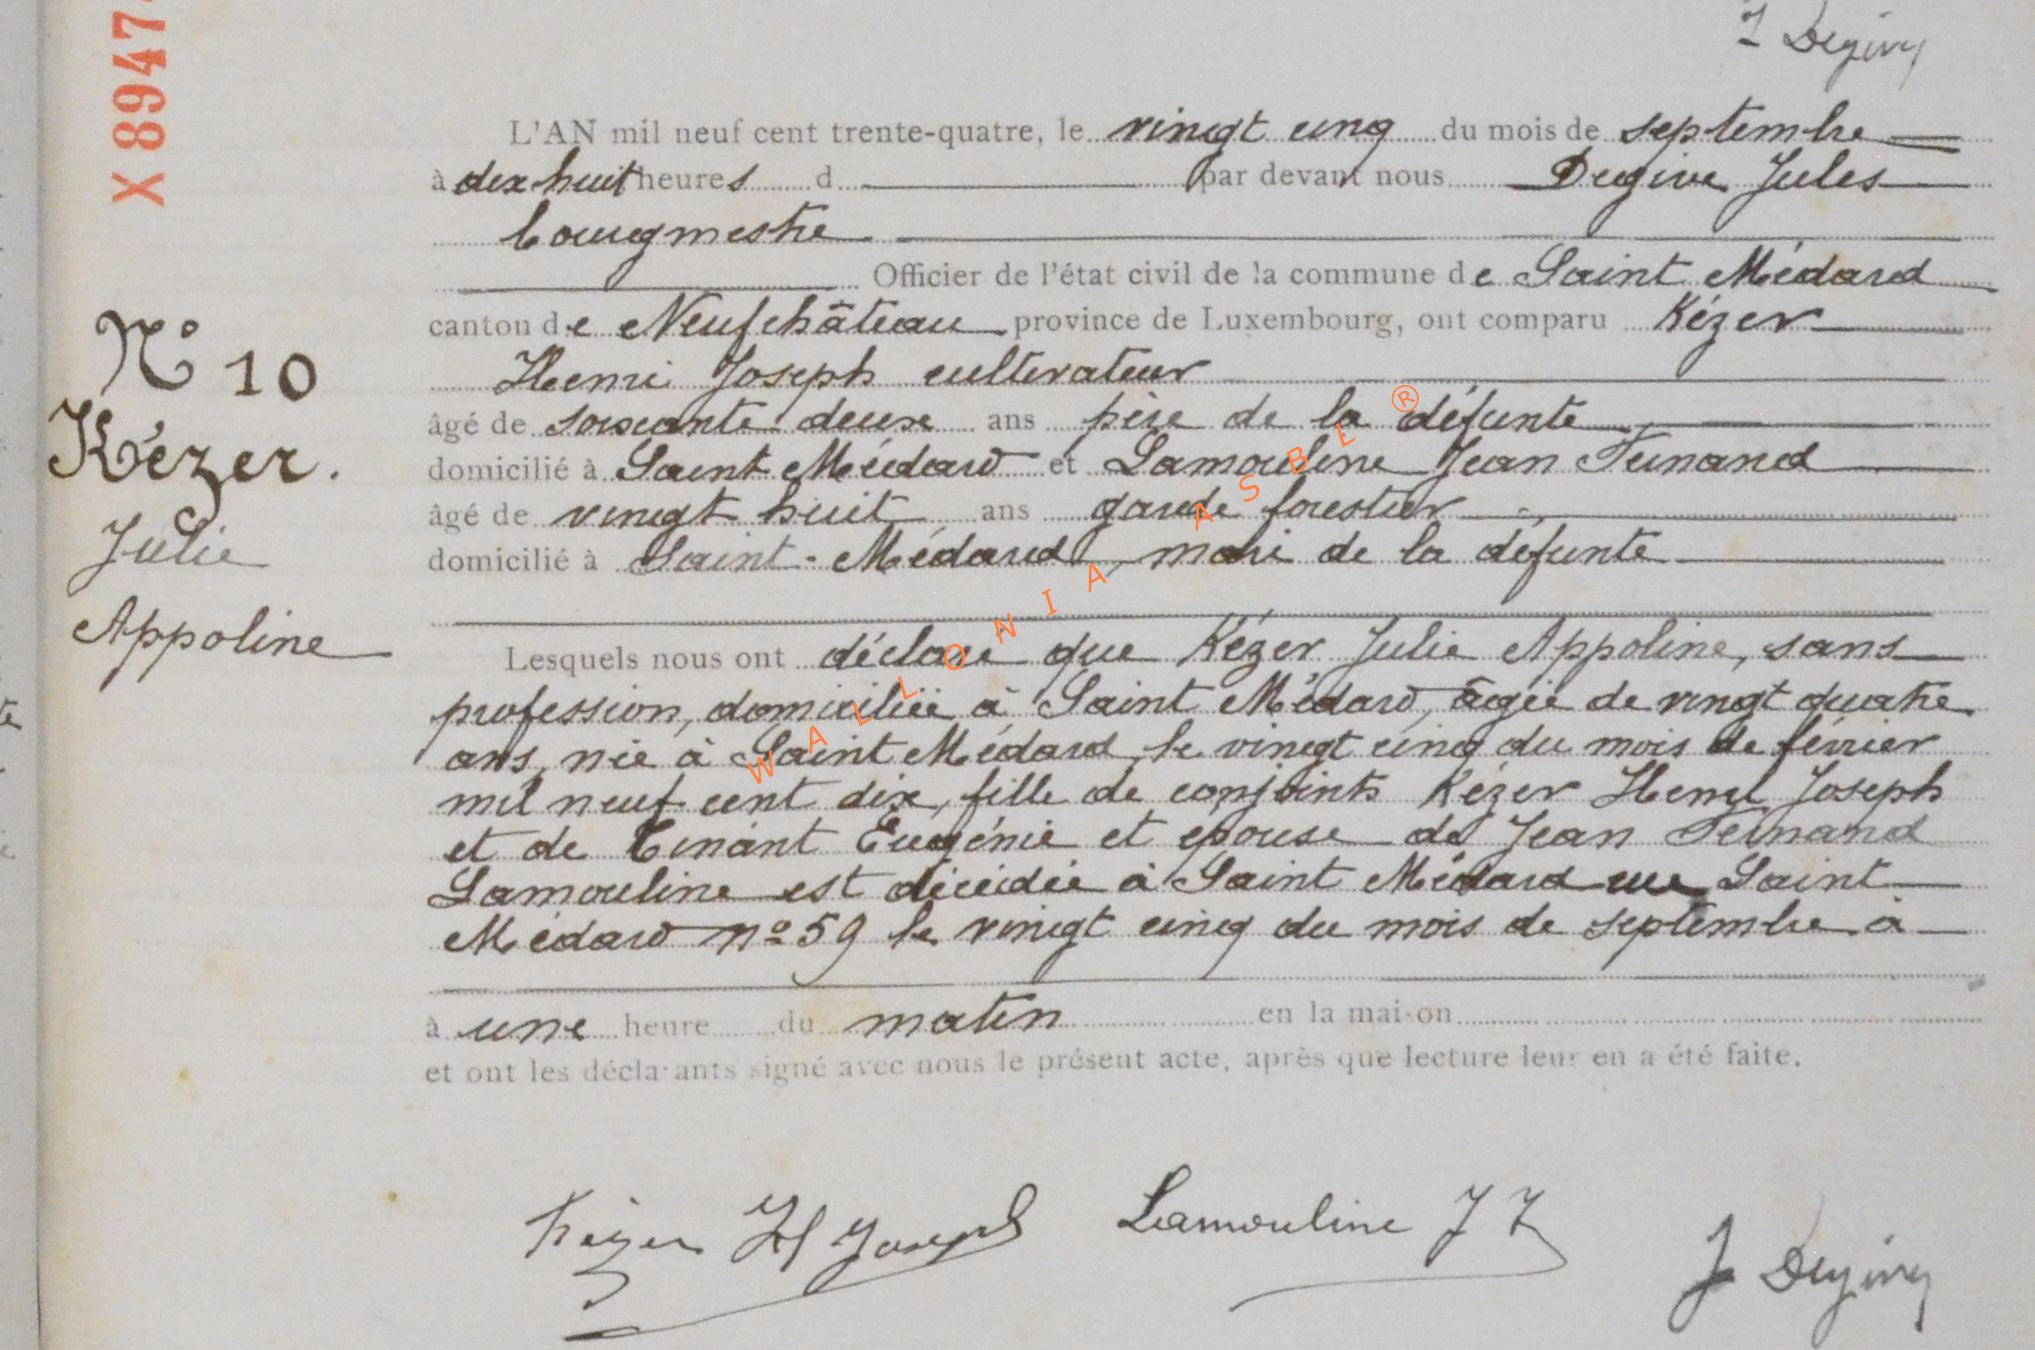 J Degive
X 8947
L'AN mil neuf cent trente-quatre, le vingt cinq du mois de septembre
à dix huit heures d par devant nous Degive Jules
bourgmestre
Officier de l'état civil de la commune de Saint Médard
canton de Neufchâteau province de Luxembourg, ont comparu Kézer
Henri Joseph cultivateur
âgé de soixante deux ans père de la défunte
domicilié à Saint Médard et Lamouline Jean Fernand
âgé de vingt huit ans garde forestier
domicilié à Saint-Médard, mari de la défunte
N° 10
Kézer.
Julie
Appoline
Lesquels nous ont déclaré que Kézer Julie Appoline, sans
profession, domiciliée à Saint Médard, âgée de vingt quatre
ans, née à Saint Médard, le vingt cinq du mois de février
mil neuf cent dix, fille de conjoints Kézer Henri Joseph
et de Tinant Eugénie et épouse de Jean Fernand
Lamouline est décédée à Saint Médard rue Saint
Médard n° 59 le vingt cinq du mois de septembre à
à une heure du matin en la maison
et ont les déclarants signé avec nous le présent acte, après que lecture leur en a été faite.
Kézer H Joseph Lamouline J F J Degive
WALLONIA ASBL ®